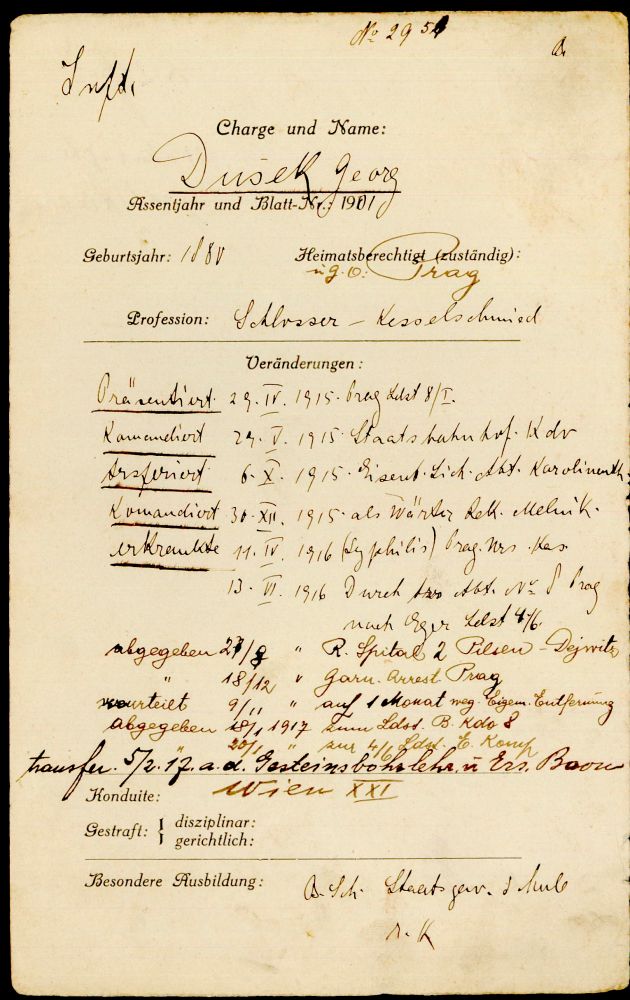 No 2954
Inft.
Charge und Name:
Dušek Georg
Assentjahr und Blatt-Nr.: 1901
Geburtsjahr: 188V
Heimatsberechtigt (zuständig):
u. g. O: Prag
Profession: Schlosser – Kesselschmied
Veränderungen:
Präsentiert 29. IV. 1915. Prag Ldst 8/I.
Komandiert 29. V. 1915. Staatsbahnhof. Kdo
6. X. 1915. Eisenb. Sich. Abt. Karolinenth.
Komandiert 30. XII. 1915. als Wärter Melnik.
erkrankte 11. IV. 1916 (Syphilis) Prag.
13. VI. 1916 Durch Abt. No 8 Prag
nach Eger Ldst 4/6.
abgegeben 27/8 " R. Spital 2 Pilsen - Dejwitz
" 18/12 " Garn. Arrest Prag
verurteilt 9/11 " auf 1 Monat weg. Eigenm. Entfernung
abgegeben 18/1 1917 zum Ldst. B. Kdo 8
20/1 " zur 4/6 Ldst. E. Komp
transfer. 5/2. 17. a. d. Gesteinsbohrlehr. u Ers. Baon
Wien XXI
Konduite:
Gestraft: { disziplinar:
gerichtlich:
Besondere Ausbildung: B. Sch. Staatsgew. Schule